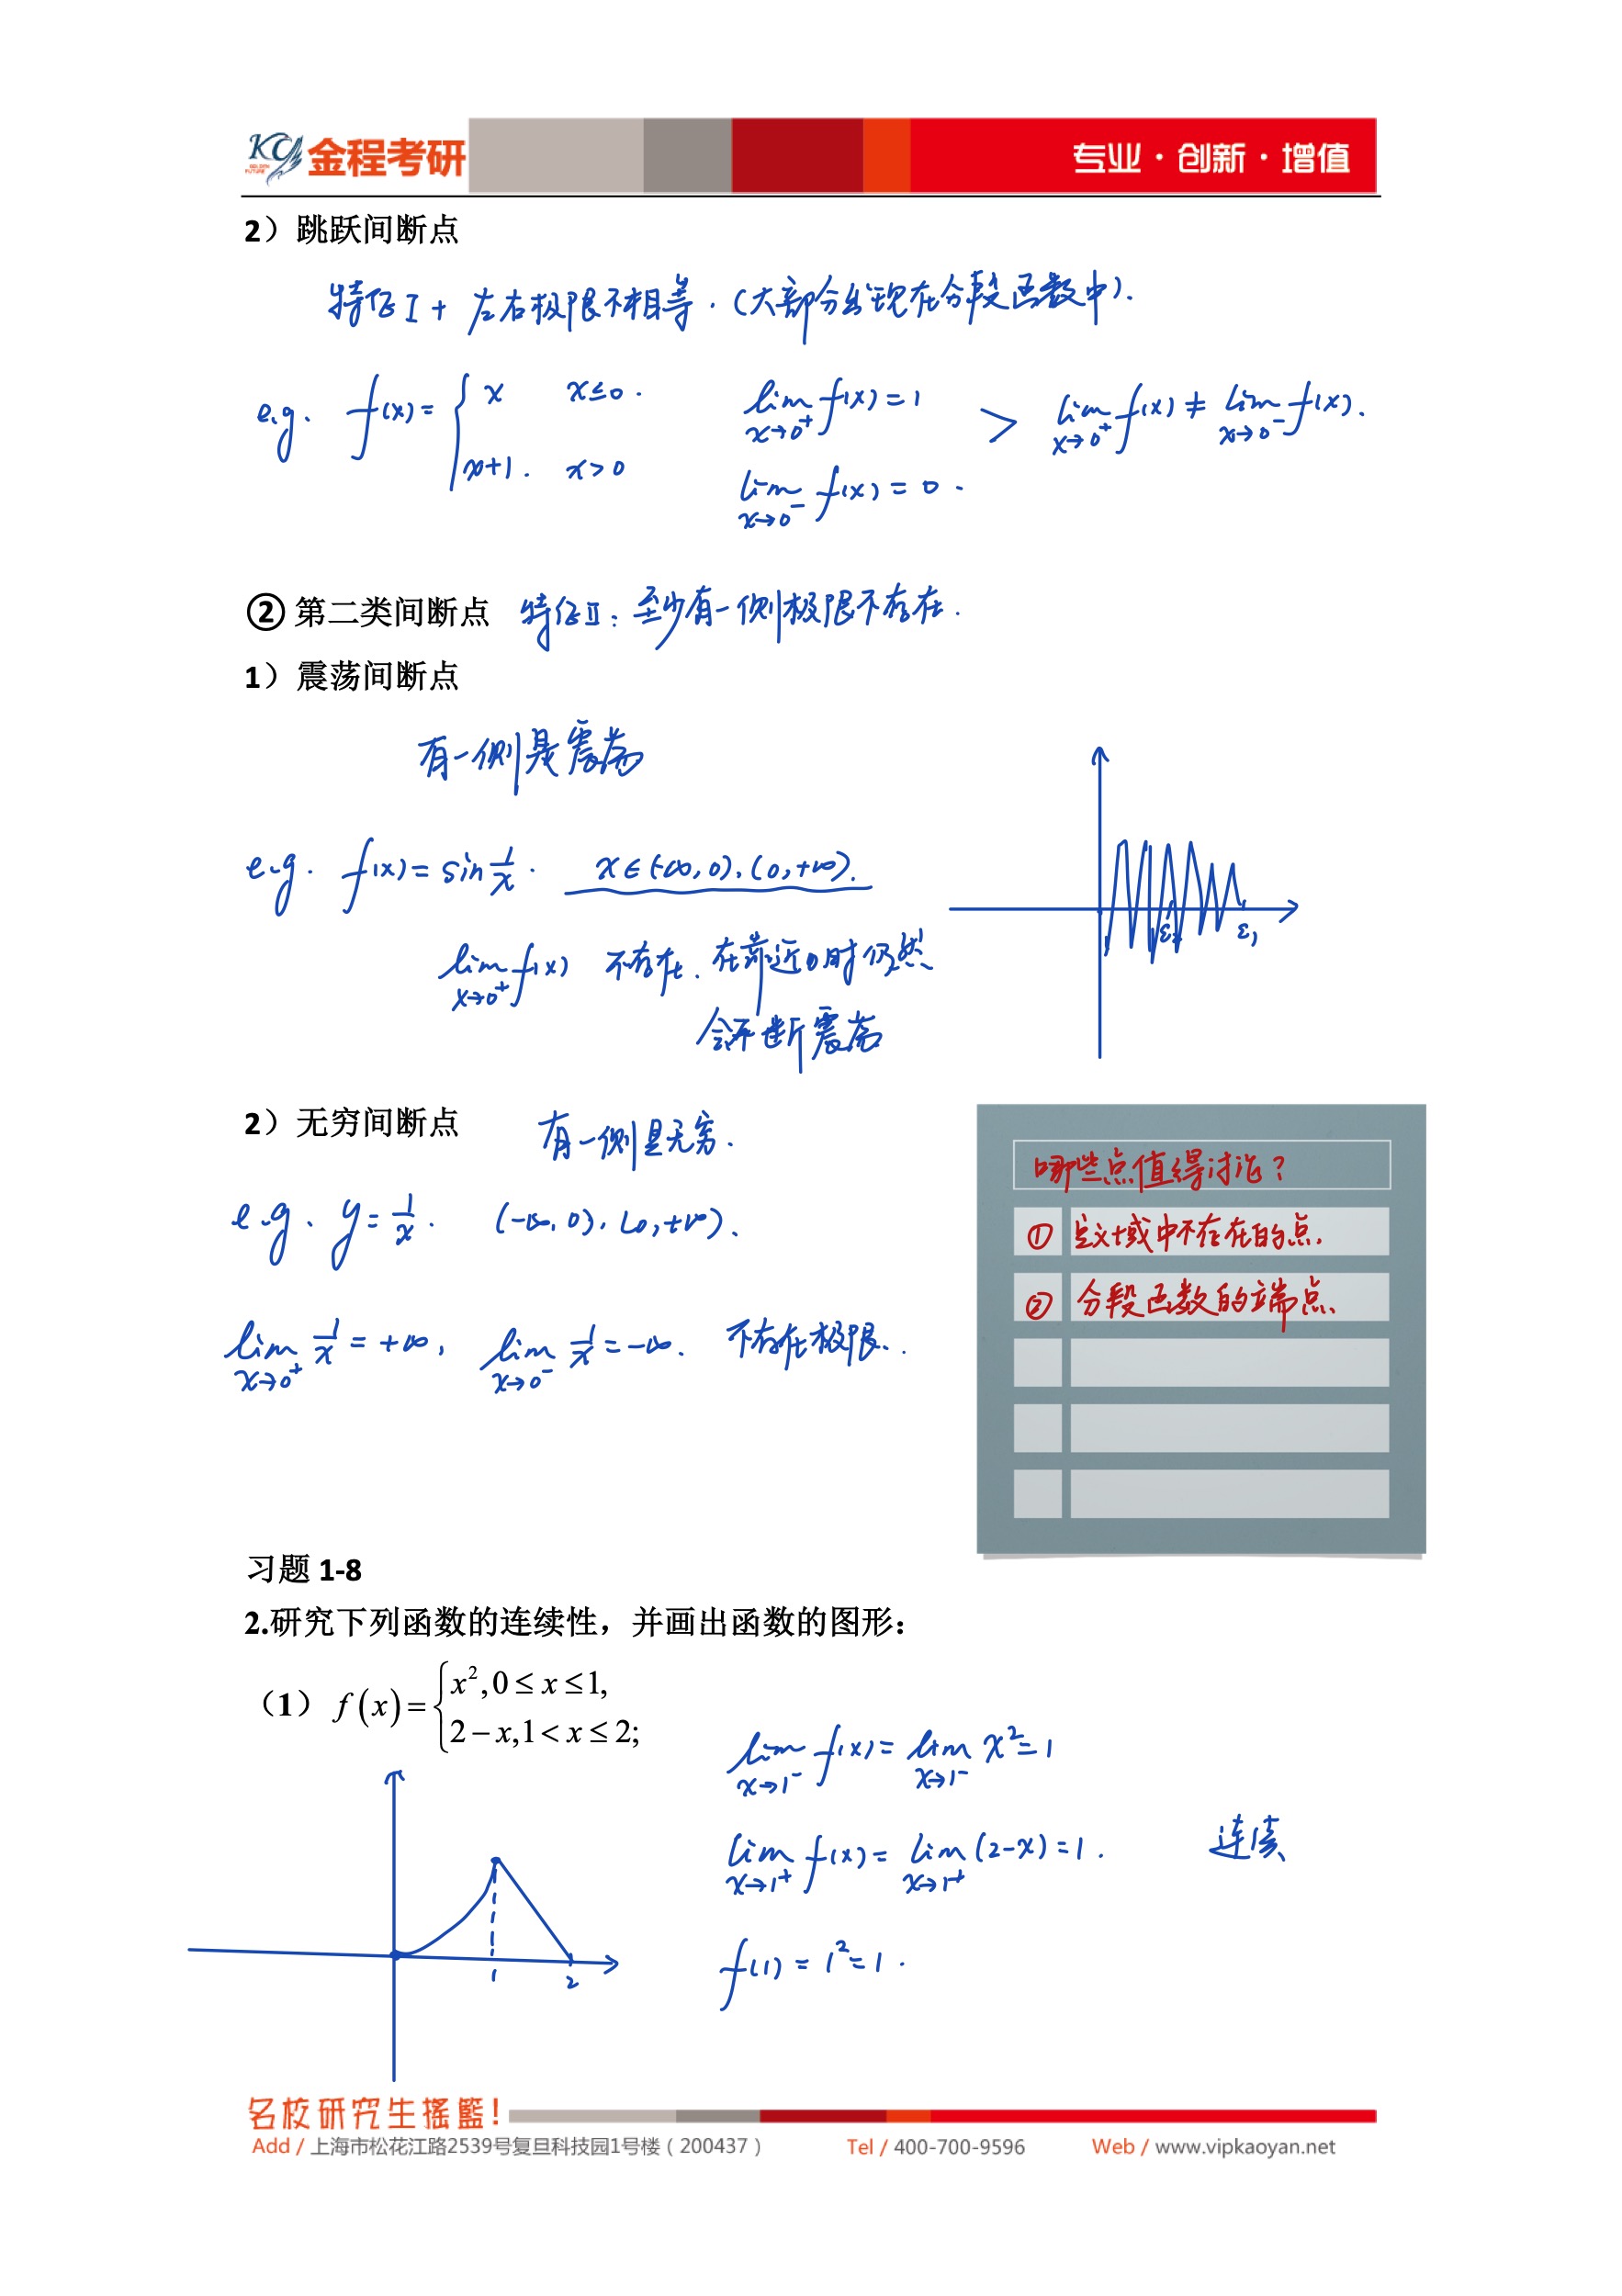 KCy 金程考研
GOLDEN FUTURE
专业·创新·增值
2）跳跃间断点
特征I + 左右极限不相等.(大部分出现在分段函数中).
e.g. f(x)= { x x≤0. x+1. x>0
lim x→0⁺ f(x)=1 > lim x→0⁺ f(x) ≠ lim x→0⁻ f(x).
lim x→0⁻ f(x)=0.
② 第二类间断点 特征II: 至少有一侧极限不存在.
1）震荡间断点
有一侧是震荡
e.g. f(x)= sin 1/x. x∈(-∞,0),(0,+∞).
lim x→0⁺ f(x) 不存在. 在靠近0时仍然
会不断震荡
ε₂ ε₁
2）无穷间断点 有一侧是无穷.
e.g. y= 1/x. (-∞,0),(0,+∞).
lim x→0⁺ 1/x = +∞, lim x→0⁻ 1/x = -∞. 不存在极限.
哪些点值得讨论?
① 定义域中不存在的点.
② 分段函数的端点.
习题 1-8
2.研究下列函数的连续性，并画出函数的图形：
（1） f(x)= { x²,0≤x≤1, 2−x,1<x≤2;
lim x→1⁻ f(x)= lim x→1⁻ x²=1
lim x→1⁺ f(x)= lim x→1⁺ (2-x)=1. 连续
f(1)=1²=1.
1 2
名校研究生摇篮!
Add / 上海市松花江路2539号复旦科技园1号楼（200437） Tel / 400-700-9596 Web / www.vipkaoyan.net